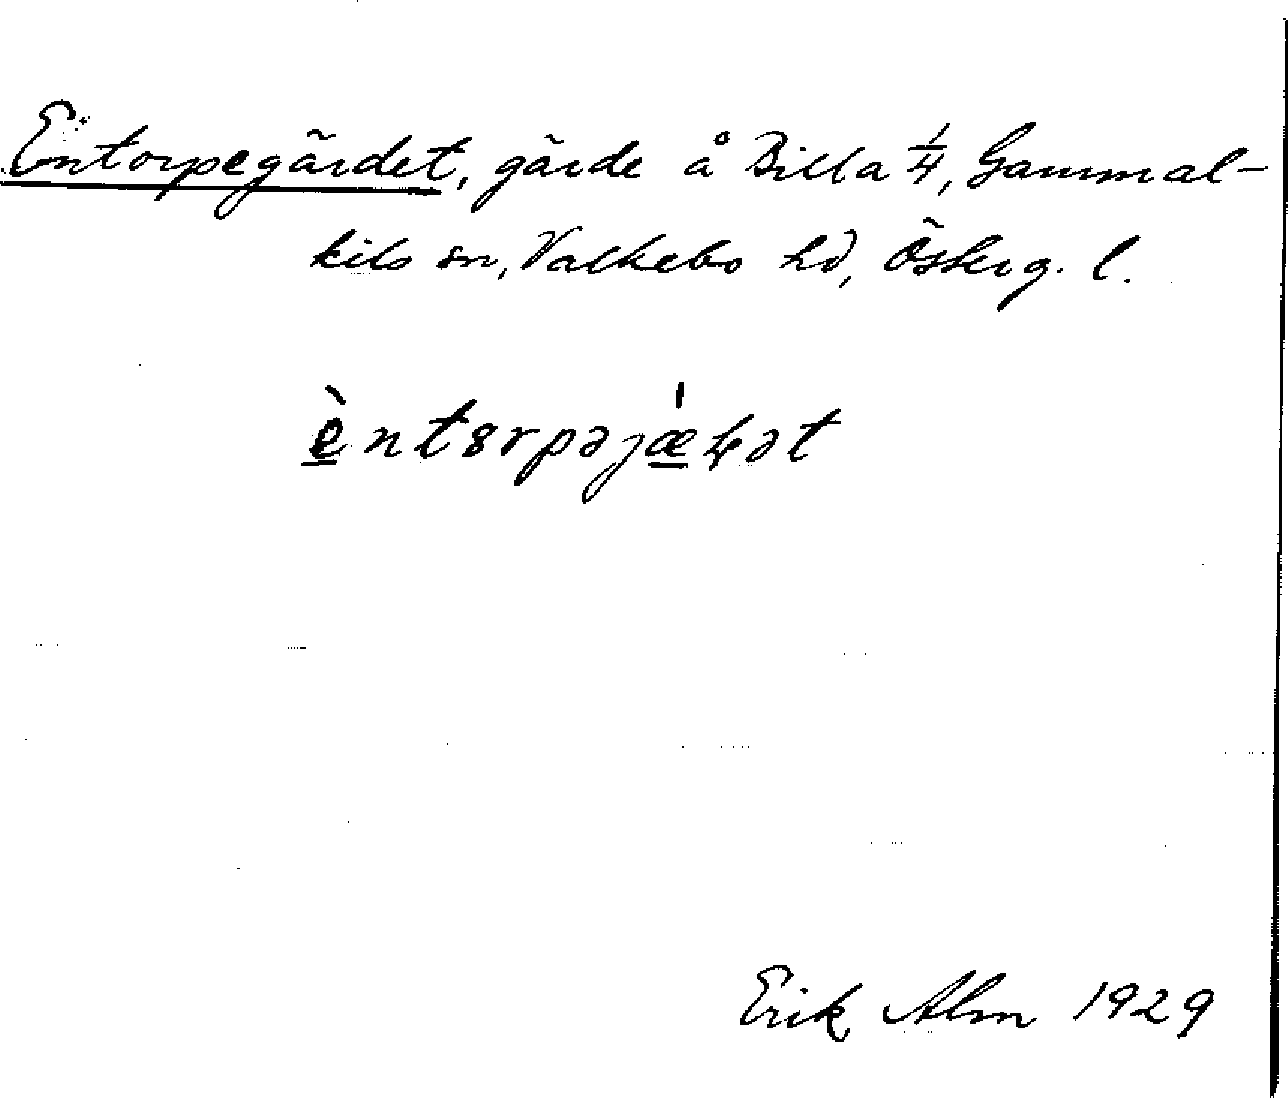 Entorpegärdet, gärde å Billa 1/4, Gammal-
kils sn, Valkebo hd, Österg. l.
èntɜrpəjǽḷət
Erik Alm 1929